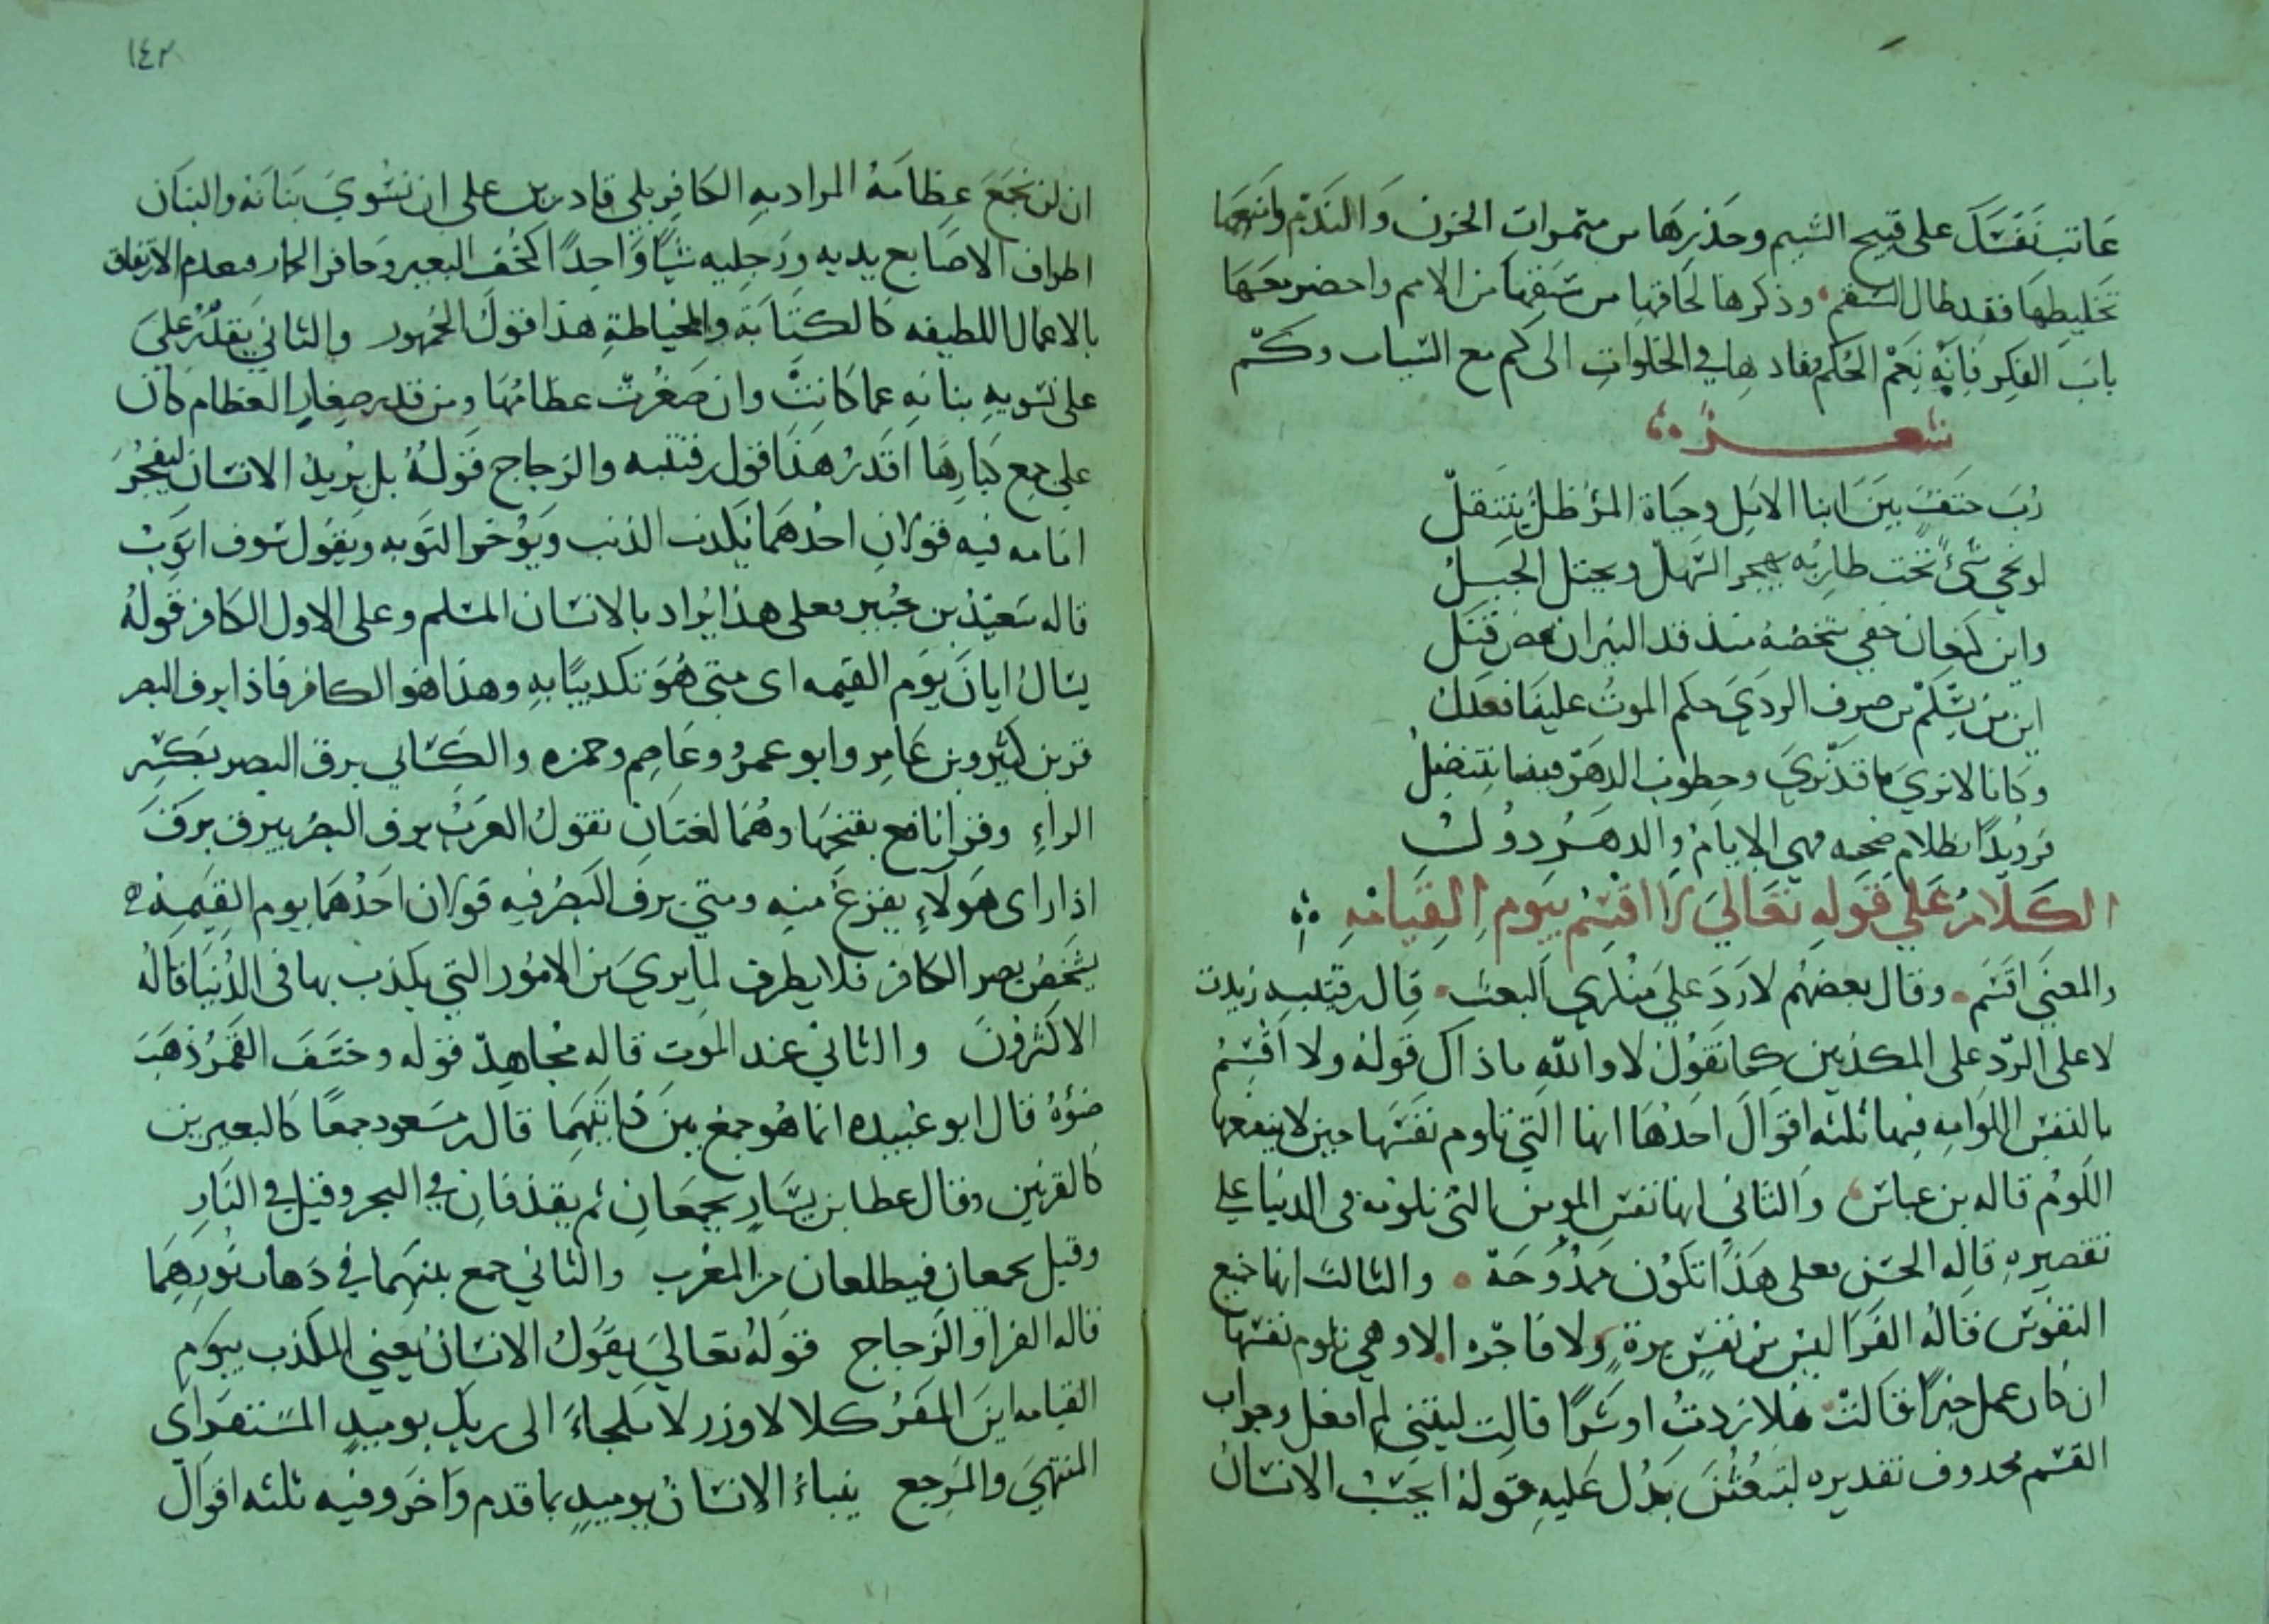 عَاتب نَفسَكَ على قبيح الشيم وحذرها من مثمرات الحزن وَالندم وامنعها
تخليطها فقد طال السقم وذكرها لحاقها من سبقها من الامم واحضر معها
بابَ الفكر فانه نعم الحَكم ونادها في الخلوات الى كم مع الشباب وكم
شعر
رُبَ حتفٍ بَينَ اثنا الامَل وحيَاة المرء ظل ينتقل
لو نجي شيءٌ نحت طاربه يهجر السَهل ويحتل الجبَلُ
واين كنعان خفي شخصه منذ قد النيران بعض قتَل
اين من يسلم من صرف الردَي حكم الموتُ علينا فعدل
وكانا لا نرَي ما قد نرَي وخطوب الدهر فينا تنتضل
فرويدًا بظلامٍ صحه فهي الايامُ والدهرُ دولُ
الكلامُ عَلي قولهِ تعَاليَ لا اقسم بيَومِ القيامهِ
والمعني اقسم وقال بعضهُم لا رَدَ علي منكري البعث قال بن قتيبه زيدت
لا على الرّد على المكذبين كما تقُول لا والله ما ذاك قَولهُ ولا اقسمُ
بالنفس اللوامه فيها ثلثه اقوالَ احَدُها انها التي تلوم نفسَها حين لا ينفعها
اللَومُ قاله بن عباس وَالثاني انها نفس المومن التي تلومه في الدنيا علي
تقصيرهِ قاله الحسَن فعلى هَذا تكون مَمدُوحَة والثالث انها جَميع
النفوس قالهُ الفَرا ليسَ من نفسٍ برةٍ ولا فاجره الا وهي تلوم نفسَها
ان كان عمل خيرًا قَالت هَلا زدتُ او شرًا قالت ليتني لم افعل وجواب
القسَم محدوف تقديره لتبعثُنَ يَدُل عَليهِ قَولهُ ايحسَبُ الانسَانُ
١٤٢
ان لن نجمَعَ عظامَهُ المراد بهِ الكافِر بلي قادرين على ان نسَويَ بَنانَهُ والبنَان
اطراف الاصَابع يديهِ ورَجليه شيًا وَاحِدًا كخُف البعير وحَافر الحمار فيعدم الارتفاق
بالاعمال اللطيفه كالكتَابَة والخياطةِ هذا قولُ الجمهور والثاني نقدرُ عَلي
على تسويهِ بنانهِ عما كانت وان صَغُرت عظامُهَا ومن قدر صغارِ العظام كان
علي جمع كبارِهَا اقدرُ هَذا قول بن قتيبه والزجاج قَولهُ بل يُريدُ الانسَان ليفجُرَ
امَامه فيه قولان احدُهمَا يكذب الذنب ويؤخر التوبه ويَقول سَوف اتوبُ
قاله سَعيد بن جُبير فعلى هذا يُراد بالانسَان المسلم وعلى الاول الكافر قَولهُ
يسَالُ ايانَ يوَم القيمه اى متَي هُوَ تكذيبًا بهِ وهذا هُو الكافر فاذا برق البصر
قر بن كثير وبن عَامِر وابو عمرُو وعَاصِم وحمزه والكِسَائي برق البصر بكسْر
الراءِ وقرا نافع بفتحِهَا وهُمَا لغتَانِ تقولُ العرَبُ برق البصَرُ يبرق بَرقَ
اذا راى هَولاءِ يفزعَ منه ومتي برق البَصرُ فيه قولان احَدُهمَا يوم القيمه
يشخصُ بصر الكافر فلا يطرف لما يريَ من الامُور التي يكذب بها في الدُنيَا قالهُ
الاكثرونَ والثاني عند الموت قاله مُجاهدٌ قوله وخسَفَ القمرُ ذهَبَ
ضوؤهُ قال ابو عُبيده انما هُو جمع بينَ ذاتَيهِمَا قال بن مسَعود جمعًا كالبعيرين
كالقرنين وقال عطا بن يَسَارٍ يجمعَان ثم يقذفانِ في البحر وقيل في النَارِ
وقيل يجمعان فيطلعان من المغرب والثاني جمع بينهِما في ذهاب نُورِهِمَا
قاله الفرا والزَجاج قولهُ تعَاليَ يقولُ الانسَان يَعني المكذب بيوَم
القيامه اينَ المفَرُ كلا لا وزر لا مَلجاءَ الى ربك يوميذٍ المستقر اى
المنتهيَ والمرجع ينباءُ الانسَانُ يوميذٍ بما قدم واخَر وفيه ثلثه اقوالَ